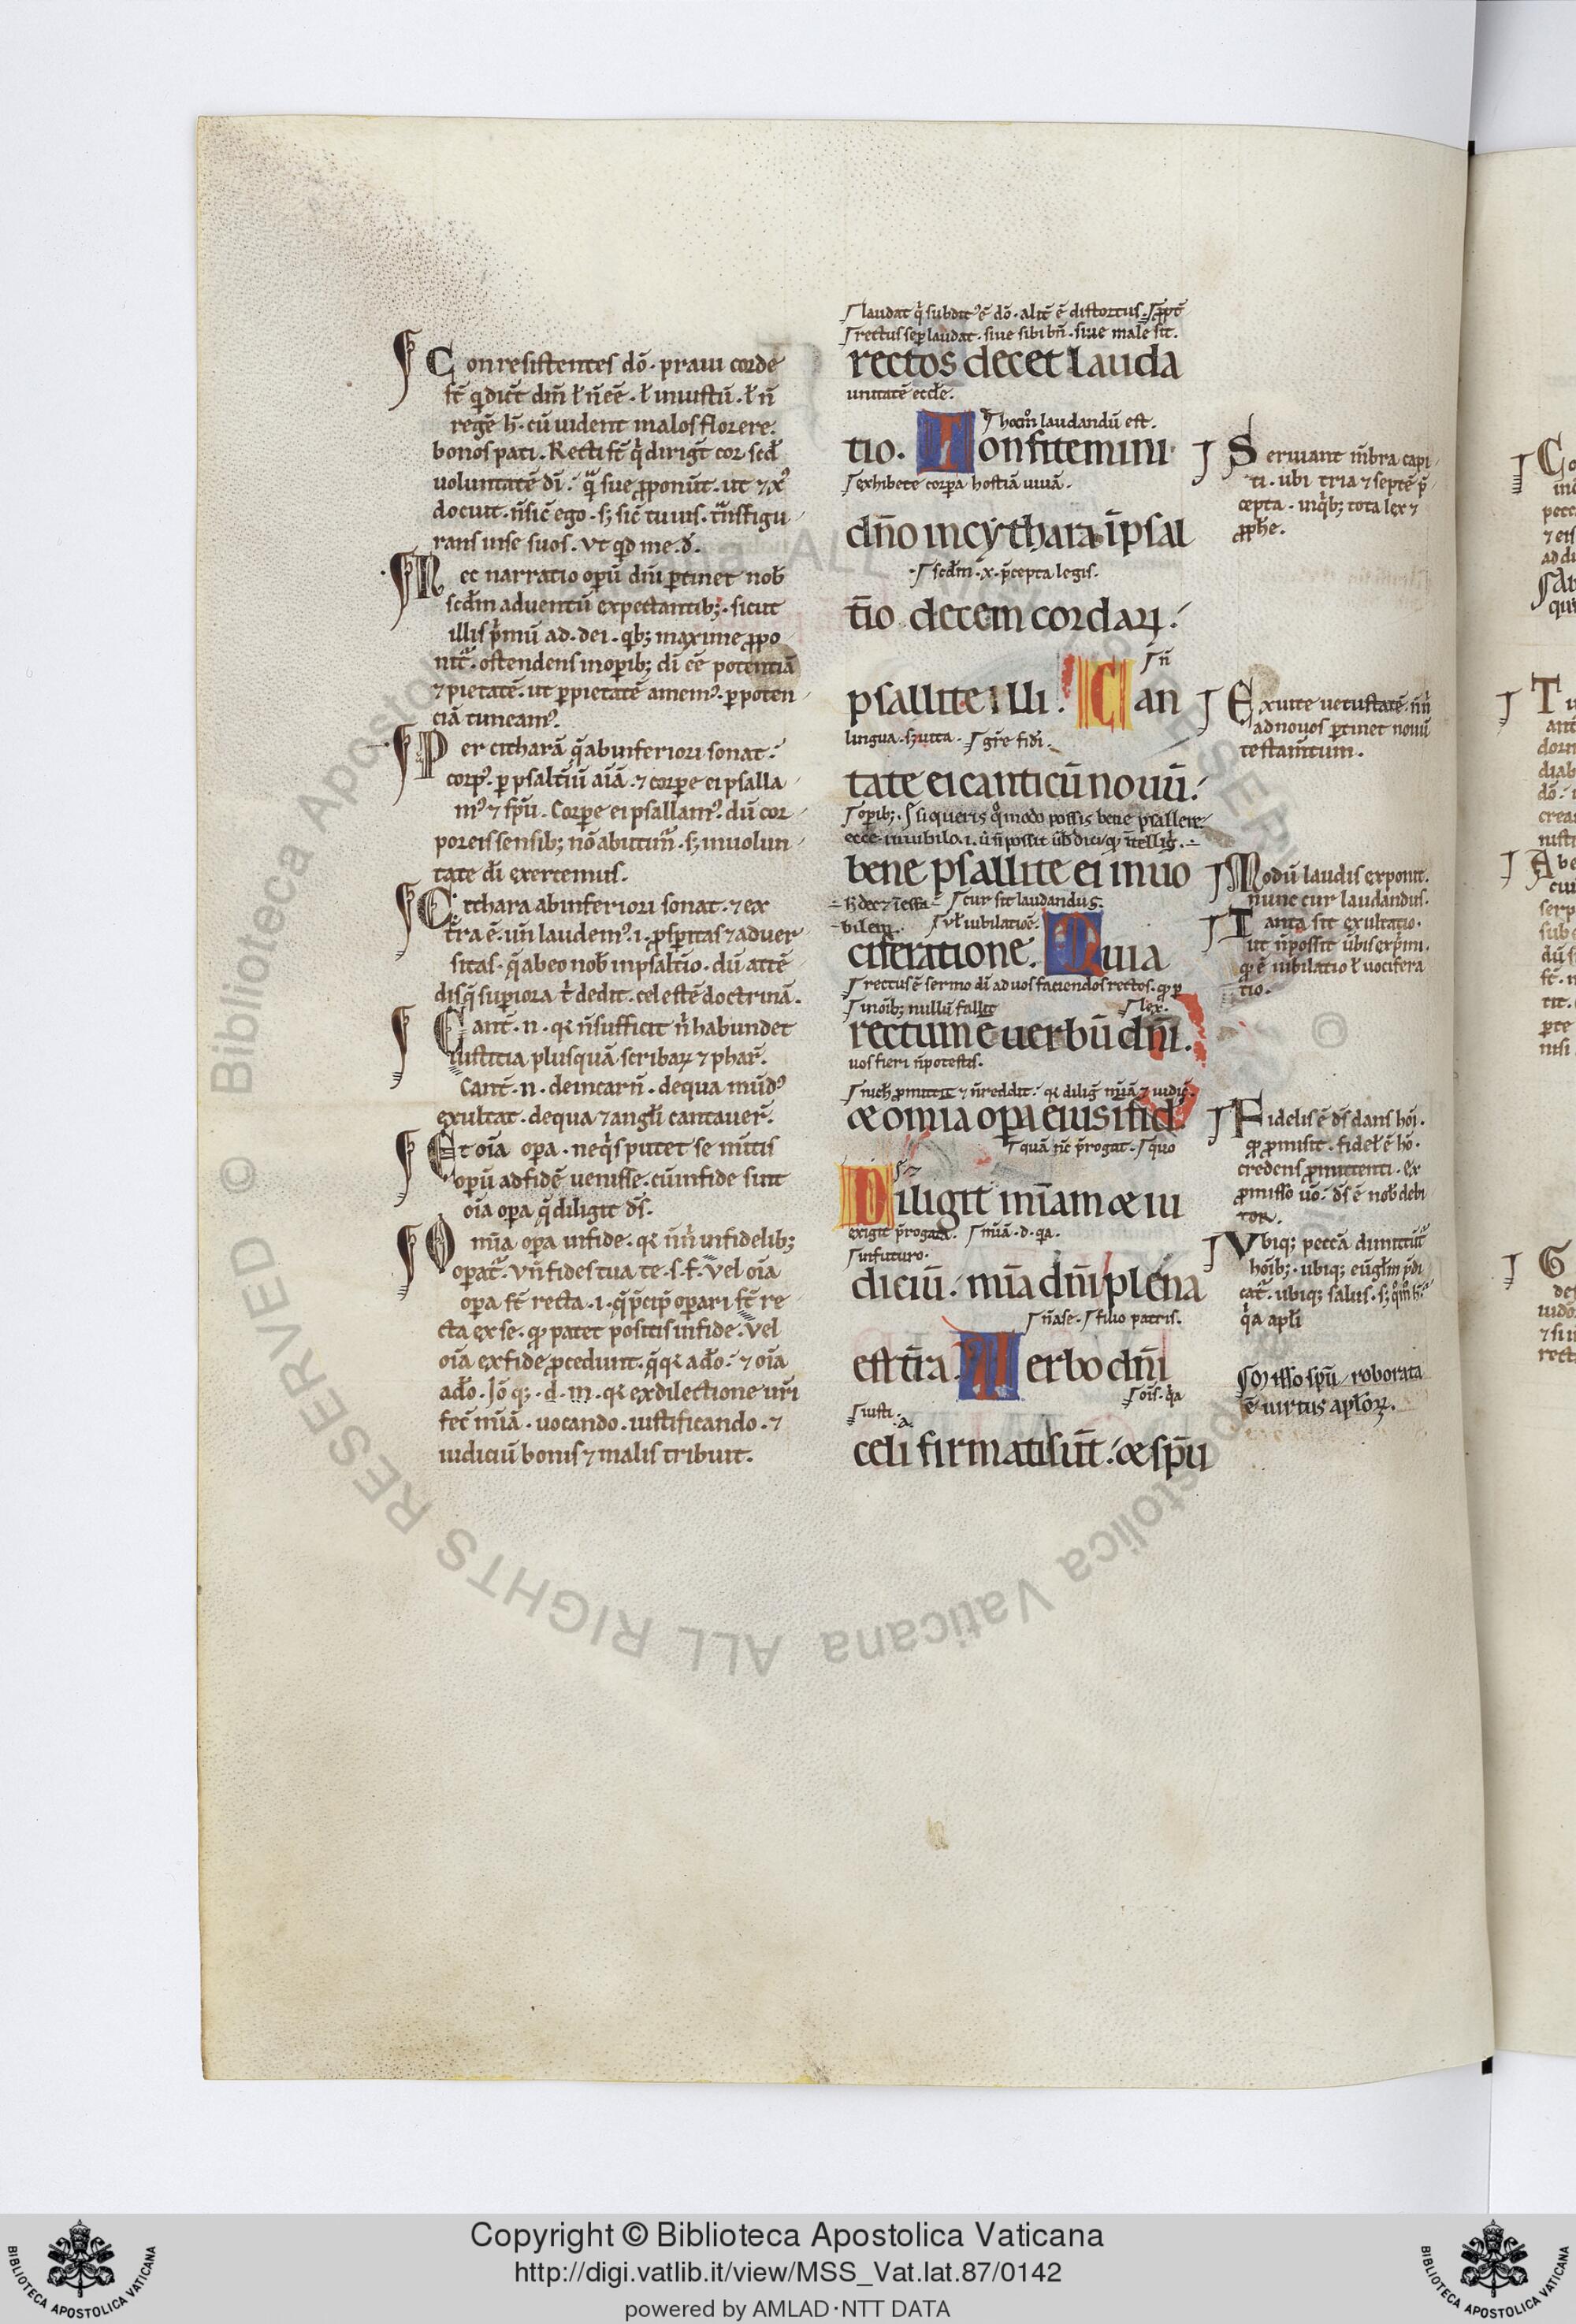 Con resistentes dō · praui corde
st̄ q̇ dic̄t dm̄ ł n̄ eē · ł iniustū · ł n̄
regē h̄ · cū uident malos florere ·
bonos pati · Recti st̄ q̇ dirigt̄ cor scd̄
uoluntatē dī · q̄ sue p̄ponūt · ut ⁊ xp̄
docuit · n̄ sic̄ ego · s; sic̄ tu uis · tn̄sfigu
rans in se suos · vt qd me · d̄ ·
Nec narratio operū diu ptinet nob̄
scd̄m aduentū expectantib; · sicut
illis p̄mū ad · dei · qb; maxime p̄po
nit̄ · ostendens in opib; dī eē potentiā
⁊ pietatē · ut p pietatē amem⁹ · p poten
ciā timeam⁹ ·
Per citharā q̄ ab inferiori sonat ·
corp⁹ · p psaltiū aīā · ⁊ corpe ei psalla
m⁹ ⁊ spū · Corpe ei psallam⁹ · dū cor
poreis sensib; nō abutim̄ · s; in uolun
tate dī exercemus ·
Cithara ab inferiori sonat · ⁊ ex
t̄ra ē · un̄ laudem⁹ · i · p̄speritas ⁊ aduer
sitas · q̄ ab eo nob̄ in psalt̄io · dū attē
disq̄ superiora t̄ dedit · celestē doctrinā ·
Cant · n · qr n̄ sufficit n̄ habundet
iusticia plusquā scribaꝝ ⁊ phar̄ ·
Cant̄ · n · de incarn̄ · de qua mūd⁹
exultat · de qua ⁊ angli cantauer̄ ·
Et oīa opa · ne q̇s putet se mītis
opū ad fidē uenisse · cū in fide sint
oīa opa q̄ diligit ds̄ ·
Omīa opa in fide · qr n̄ infidelib;
opat̄ · vn̄ fides tua te · s · f · vel oīa
opa st̄ recta · i · q̄ p̄cip̄ opari st̄ re
cta ex se · qd̄ patet positis in fide · vel
oīa ex fide p̄cedunt · q̄ qr a dō · ⁊ oīa
a dō · Iō q; · d · m · qr ex dilectione urī
fec̄ mīā · uocando · iustificando · ⁊
iudiciū bonis ⁊ malis tribuit ·
laudat q̇ subdit⁹ ē dō · alit̄ ē distortus · p̄pt̄
rectus semp laudat · siue sibi bn̄ · siue male sit ·
rectos decet lauda
unitatē eccle ·
hoc m̄ laudandū est ·
tio. Confitemini
exhibete corpa hostiā uiuā ·
dn̄o in cythara · ī psal
scdm · x · p̄cepta legis ·
t̄io decem cordaꝝ ·
n̄
psallite illi · Can
lingua · s; uita · gr̄e fidī ·
tate ei canticū nouū ·
opib; · si queris qm̄odo possis bene psallere
ecce in iubilo · i · ū n̄ possit ūb dici · qd̄ intelligr̄ ·
bene psallite ei in uo
h̄ dec ⁊ ieffa · cur sit laudandus ·
bilem · vł iubilatiōe ·
ciferatione · Quia
rectus ē sermo dī ad uos faciendos rectos · qd̄ p
in oīb; nullū fallit lex ·
rectum ē uerbū dn̄i ·
uos fieri n̄ potestis ·
nich̄ p̄mittit ⁊ n̄ reddit · qr diliḡ mīā ⁊ iudiciū ·
æ omīa opa eius ī fid
quā nc̄ p̄rogat · quo
Diligit mīam æ iu
exigit p̄rogata · mīā · d · qa ·
in futuro ·
diciū · mīa dn̄i plena
n̄ a se · filio patris ·
est t̄ra · Verbo dn̄i
oīs · q̇a
iusti ·
celi firmati sūt · æ spū
Seruiant mēbra capi
ti · ubi tria ⁊ septē p̄
cepta · in qb; tota lex ⁊
p̄phe ·
Exuite uetustatē · n̄
ad nouos ptinet nouū
testam̄tum ·
Modū laudis exponit ·
nunc cur laudandus ·
Tanta sit exultatio ·
ut n̄ possit ūbis exp̄mi ·
qd̄ ē iubilatio ł uocifera
tio ·
Fidelis ē ds̄ dans hoī ·
qd̄ p̄misit · fideł ē hō ·
credens p̄mittenti · ex
p̄misso uō · ds̄ ē nob̄ debi
tor ·
Vbiq; peccā dimittit̄
hoīb; · ubiq; eūglm̄ p̄di
cat̄ · ubiq; salus · s;
q̇a apłi
Misso spū roborata
ē uirtus apłoꝝ ·
© Biblioteca Apostolica Vaticana ALL RIGHTS RESERVED
Copyright © Biblioteca Apostolica Vaticana
http://digi.vatlib.it/view/MSS_Vat.lat.87/0142
powered by AMLAD·NTT DATA
BIBLIOTECA APOSTOLICA VATICANA
BIBLIOTECA APOSTOLICA VATICANA